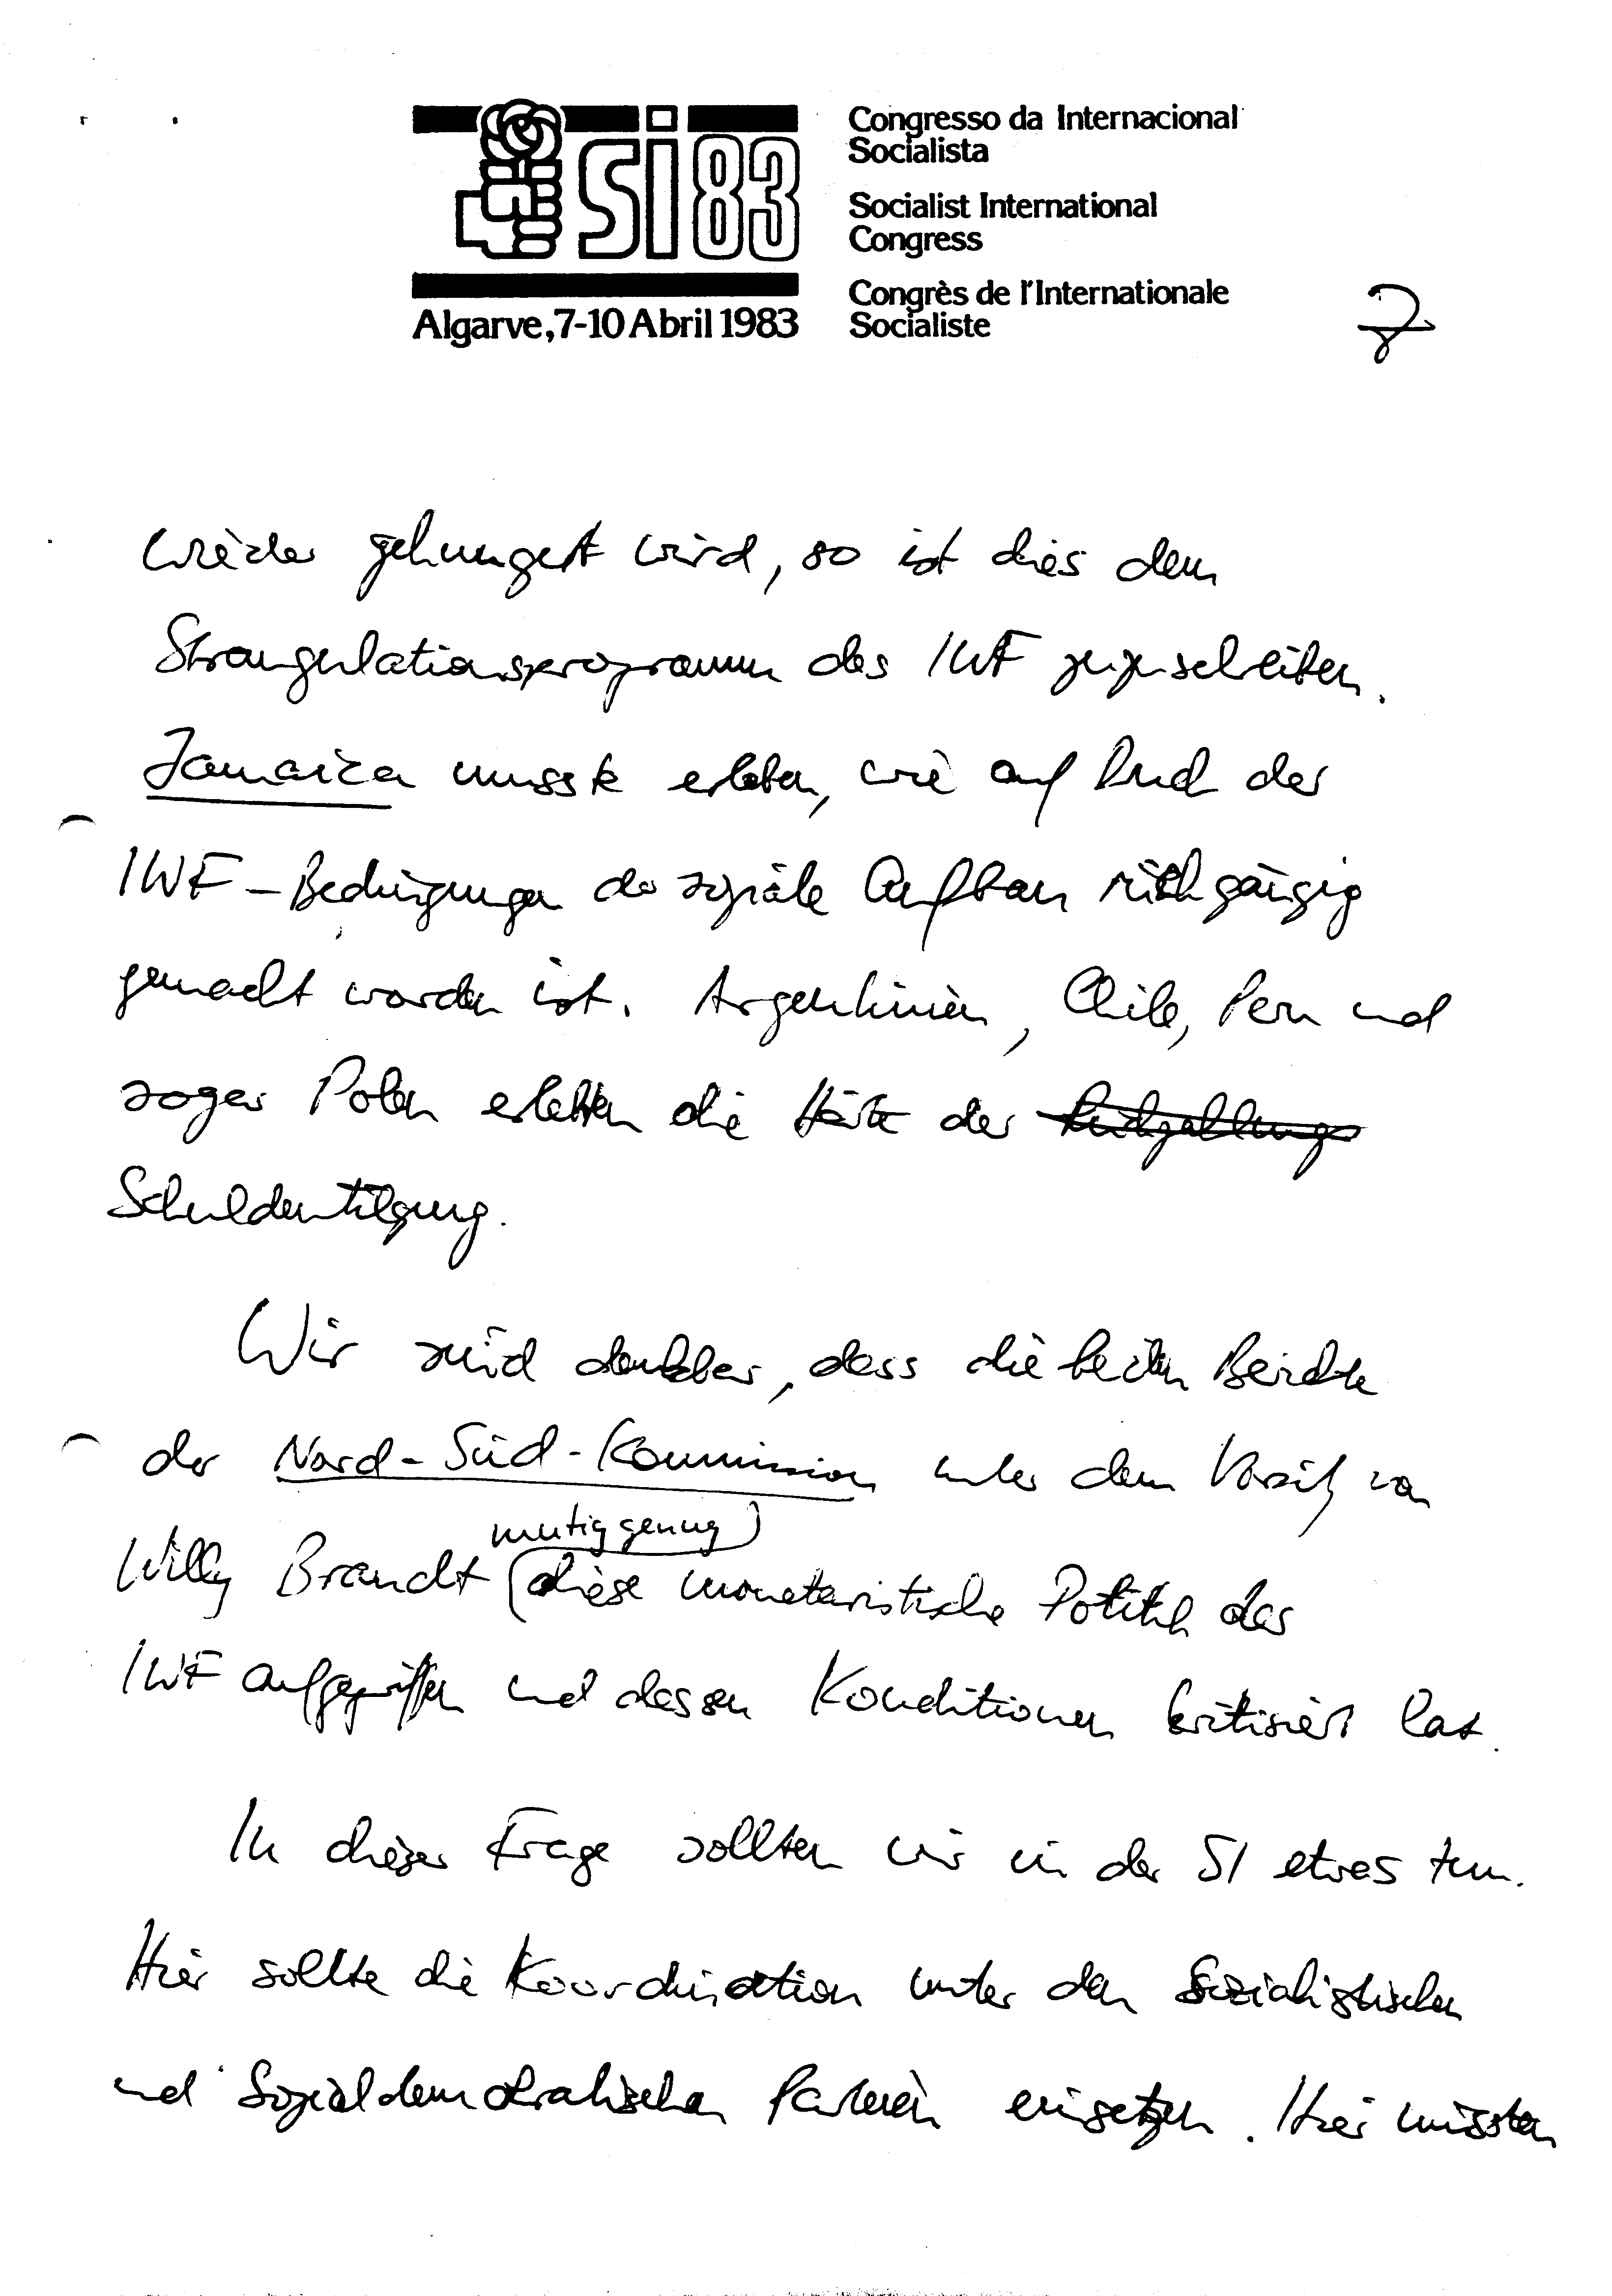 SI 83
Algarve, 7-10 Abril 1983
Congresso da Internacional
Socialista
Socialist International
Congress
Congrès de l'Internationale
Socialiste
7
wieder gehungert wird, so ist dies dem
Strangulationsprogramm des IWF zuzuschreiben.
Jamaica musste erleben, wie auf Druck der
IWF-Bedingungen der soziale Aufbau rückgängig
gemacht worden ist. Argentinien, Chile, Peru und
sogar Polen erlebten die Härte der Rückzahlung
Schuldentilgung.
Wir sind dankbar, dass die beiden Berichte
der Nord-Süd-Kommission unter dem Vorsitz von
mutig genug
Willy Brandt diese monetaristische Politik des
IWF aufgegriffen und dessen Konditionen kritisiert hat.
In dieser Frage sollten wir in der SI etwas tun.
Hier sollte die Koordination unter den Sozialistischen
und Sozialdemokratischen Parteien einsetzen. Hier müssten